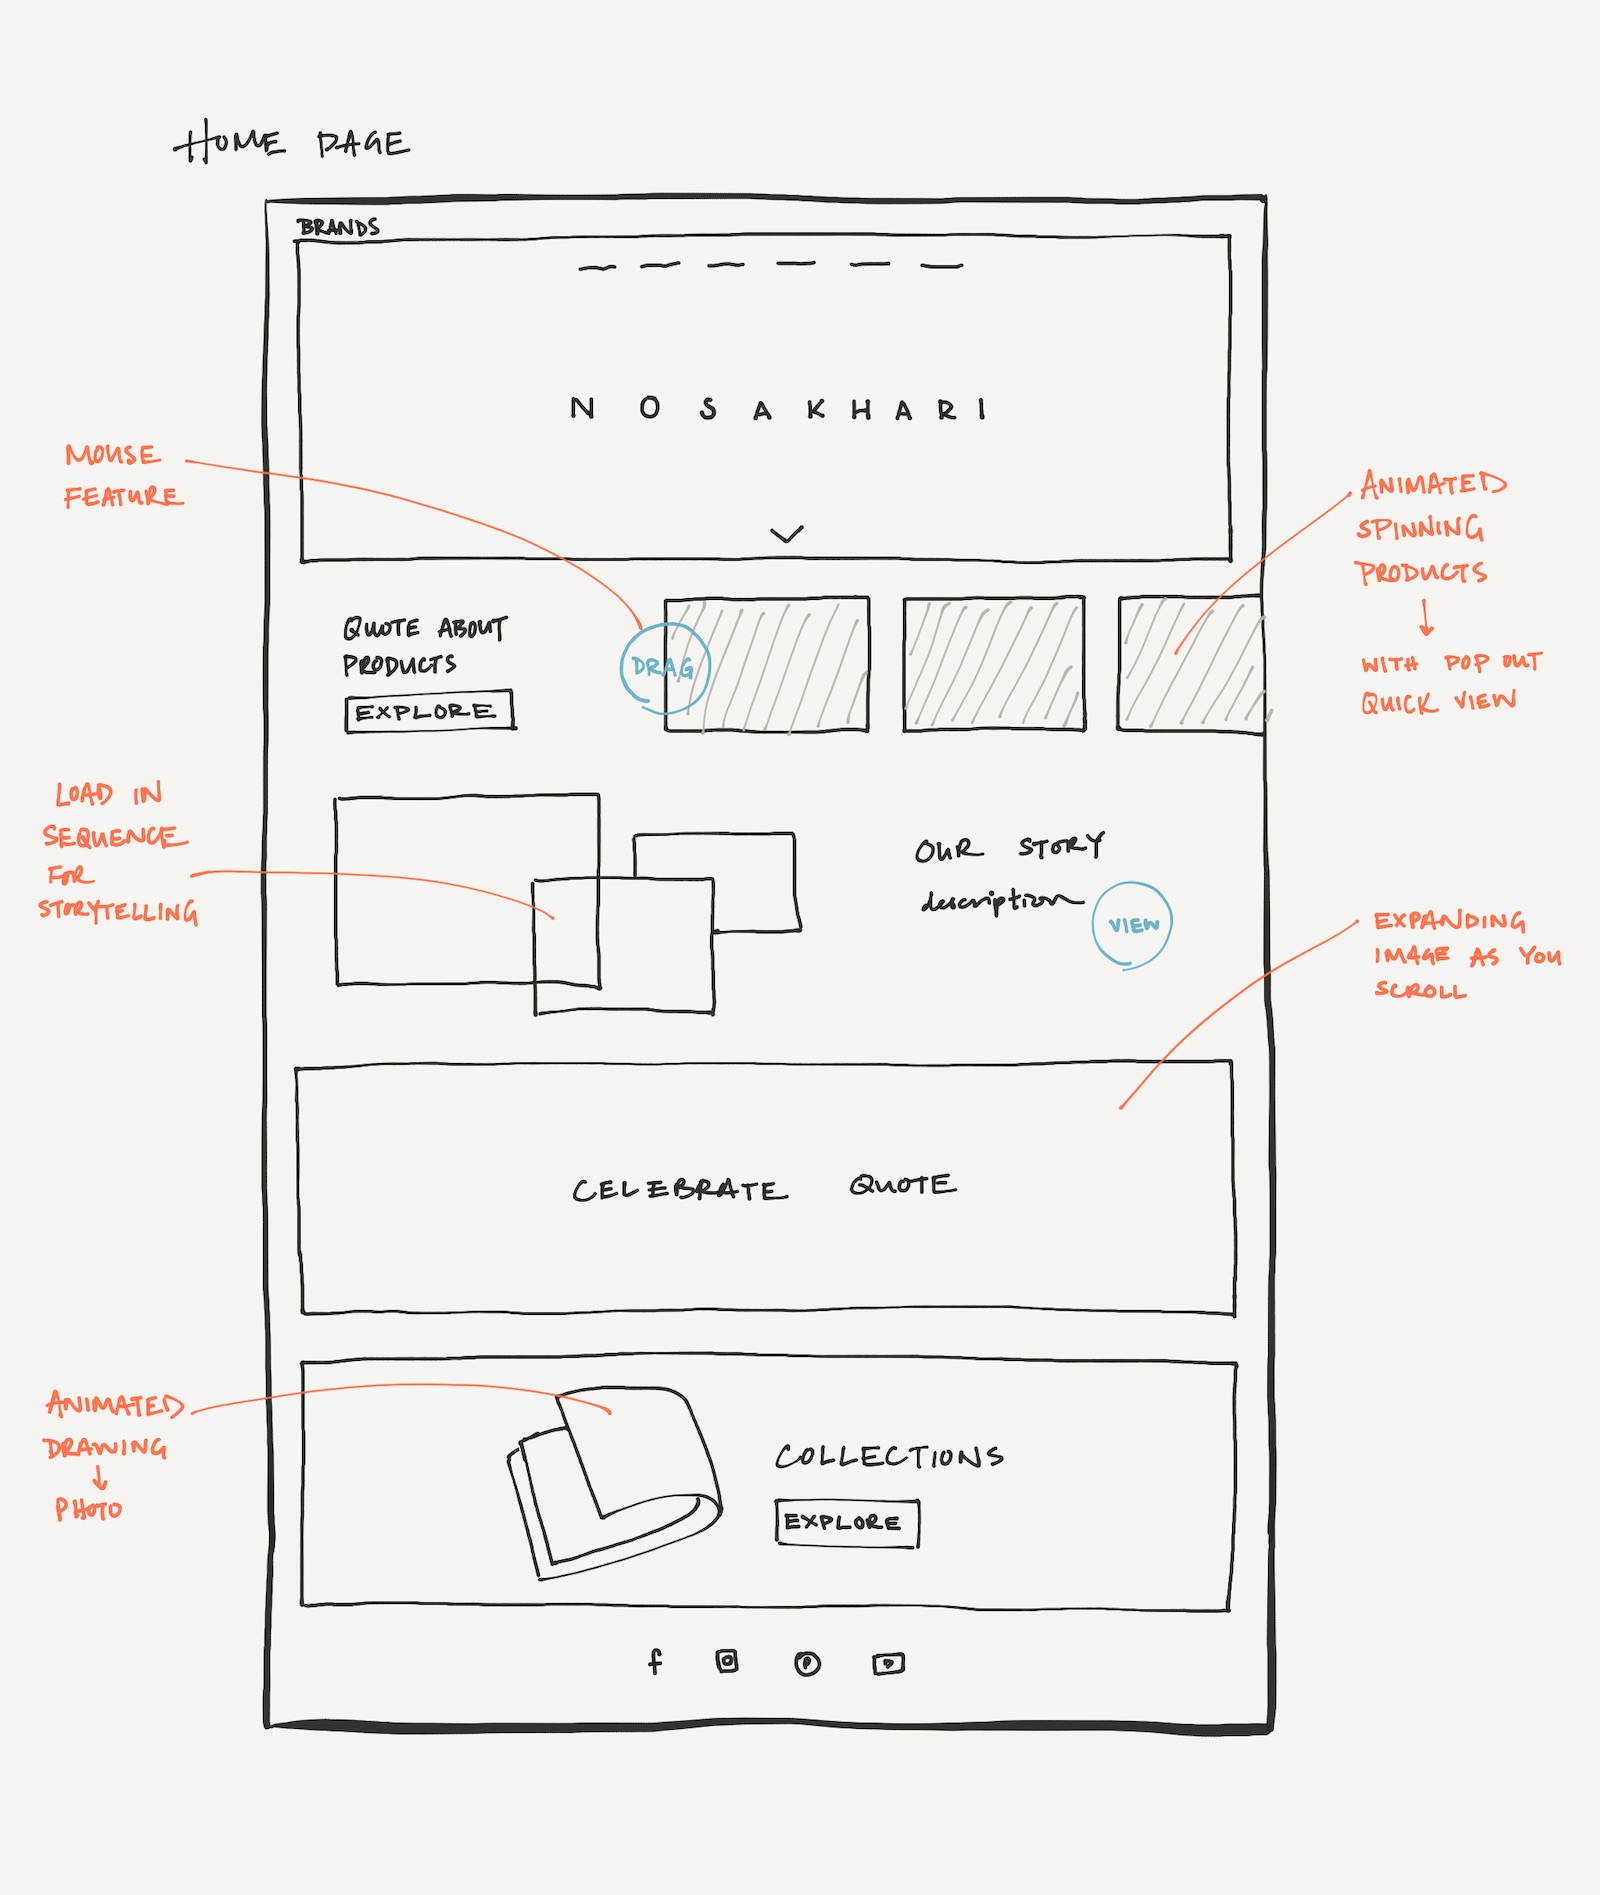 HOME PAGE
BRANDS
NOSAKHARI
MOUSE
FEATURE
ANIMATED
SPINNING
PRODUCTS
WITH POP OUT
QUICK VIEW
QUOTE ABOUT
PRODUCTS
EXPLORE
DRAG
LOAD IN
SEQUENCE
FOR
STORYTELLING
OUR STORY
description
VIEW
EXPANDING
IMAGE AS YOU
SCROLL
CELEBRATE QUOTE
ANIMATED
DRAWING
PHOTO
COLLECTIONS
EXPLORE
f